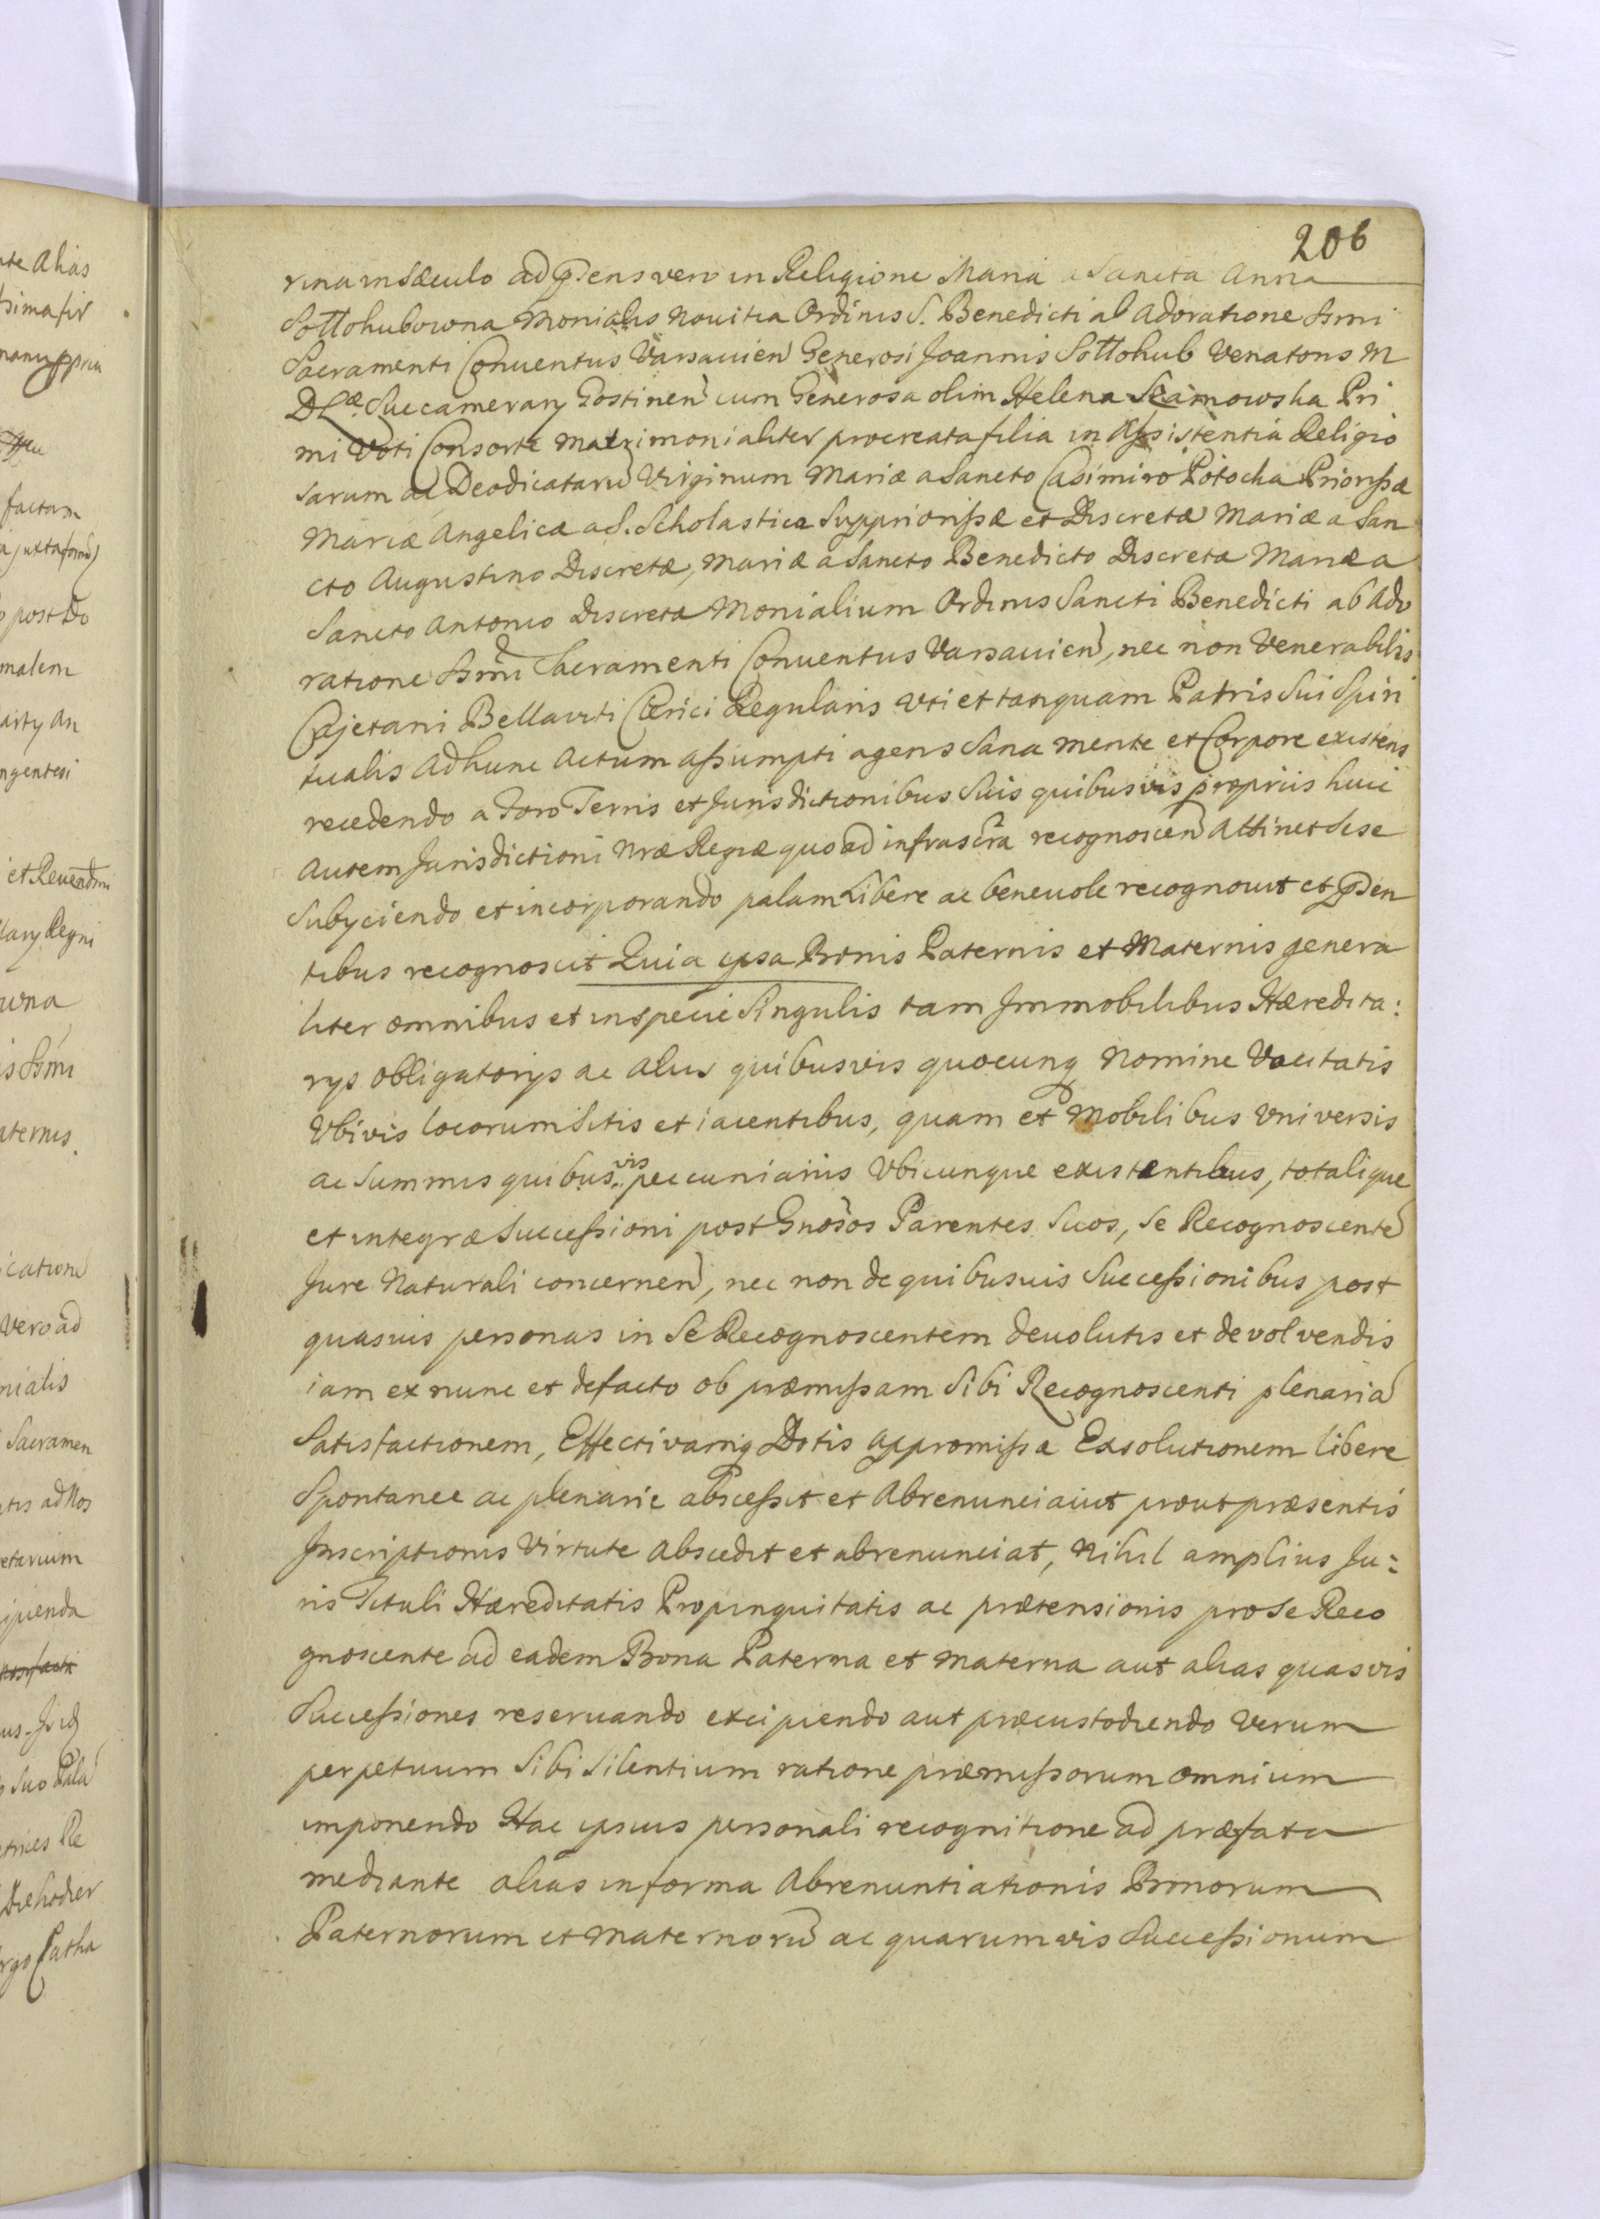 206
rina in Sæculo ad præsens vero in Religione Maria a Sancta Anna
Sottohubowna Monialis Novitia Ordinis S. Benedicti ab Adoratione Ssmi
Sacramenti Conuentus Varsauien Generosi Joannis Sottohub Venatoris M
D Læ. Succamerary Gostinen cum Generosa olim Helena Skarnowska Pri
mi Voti Consorte matrimonialiter procreata filia in Assistentia Religio
sarum ac Deodicataru Virginum Mariæ a Sancto Casimiro Potocka Priorissæ
Mariæ Angelicæ a S. Scholastica Suppriorissæ et Discretæ Mariæ a San
cto Augustino Discretæ, Mariæ a Sancto Benedicto Discretæ Mariæ a
Sancto Antonio Discretæ Monialium Ordinis Sancti Benedicti ab Ado
ratione Ssmi Sacramenti Conuentus Varsauien, nec non Venerabilis
Cajetani Bellaviti Clerici Regularis uti et tanquam Patris Sui Spiri
tualis Ad hunc Actum assumpti agens Sana mente et Corpore existens
recedendo a Foro Terris et Jurisdictionibus Suis quibusvis proprijs huic
autem Jurisdictioni Nræ Regiæ quo ad infrascra recognoscen Attinet Sese
Subyciendo et incorporando palam Libere ac beneuole recognouit et præsen
tibus recognoscit Quia ipsa Bonis Paternis et Maternis genera
liter omnibus et in specie Singulis tam Immobilibus Hæredita:
rys obligatorijs ac alijs quibusvis quocunq Nomine Vocitatis
Ubivis locorum Sitis et iacentibus, quam et Mobilibus Universis
ac Summis quibusvis pecuniarijs Ubicunque existentibus, totalique
et integræ Successioni post Gnosos Parentes Suos, Se Recognoscente
Jure Naturali concernen, nec non de quibusuis Successionibus post
quasuis personas in Se Recognoscentem deuolutis et devolvendis
iam ex nunc et de facto ob præmissam Sibi Recognoscenti plenaria
Satisfactionem, Effectivamq Dotis appromissæ Exsolutionem libere
Spontanee ac plenarie abscessit et Abrenunciavit prout præsentis
Inscriptionis Virtute Abscedit et abrenunciat, Nihil amplius Ju:
ris Tituli Hæreditatis Propinquitatis ac prætensionis pro Se Reco
gnoscente ad eadem Bona Paterna et materna aut alias quasvis
Successiones reseruando excipiendo aut præcustodiendo Verum
perpetuum Sibi Silentium ratione præmissorum omnium
imponendo Hac ipsius personali recognitione ad præfata
mediante alias in forma Abrenuntiationis Bonorum
Paternorum et Maternoru ac quarumvis Successionum